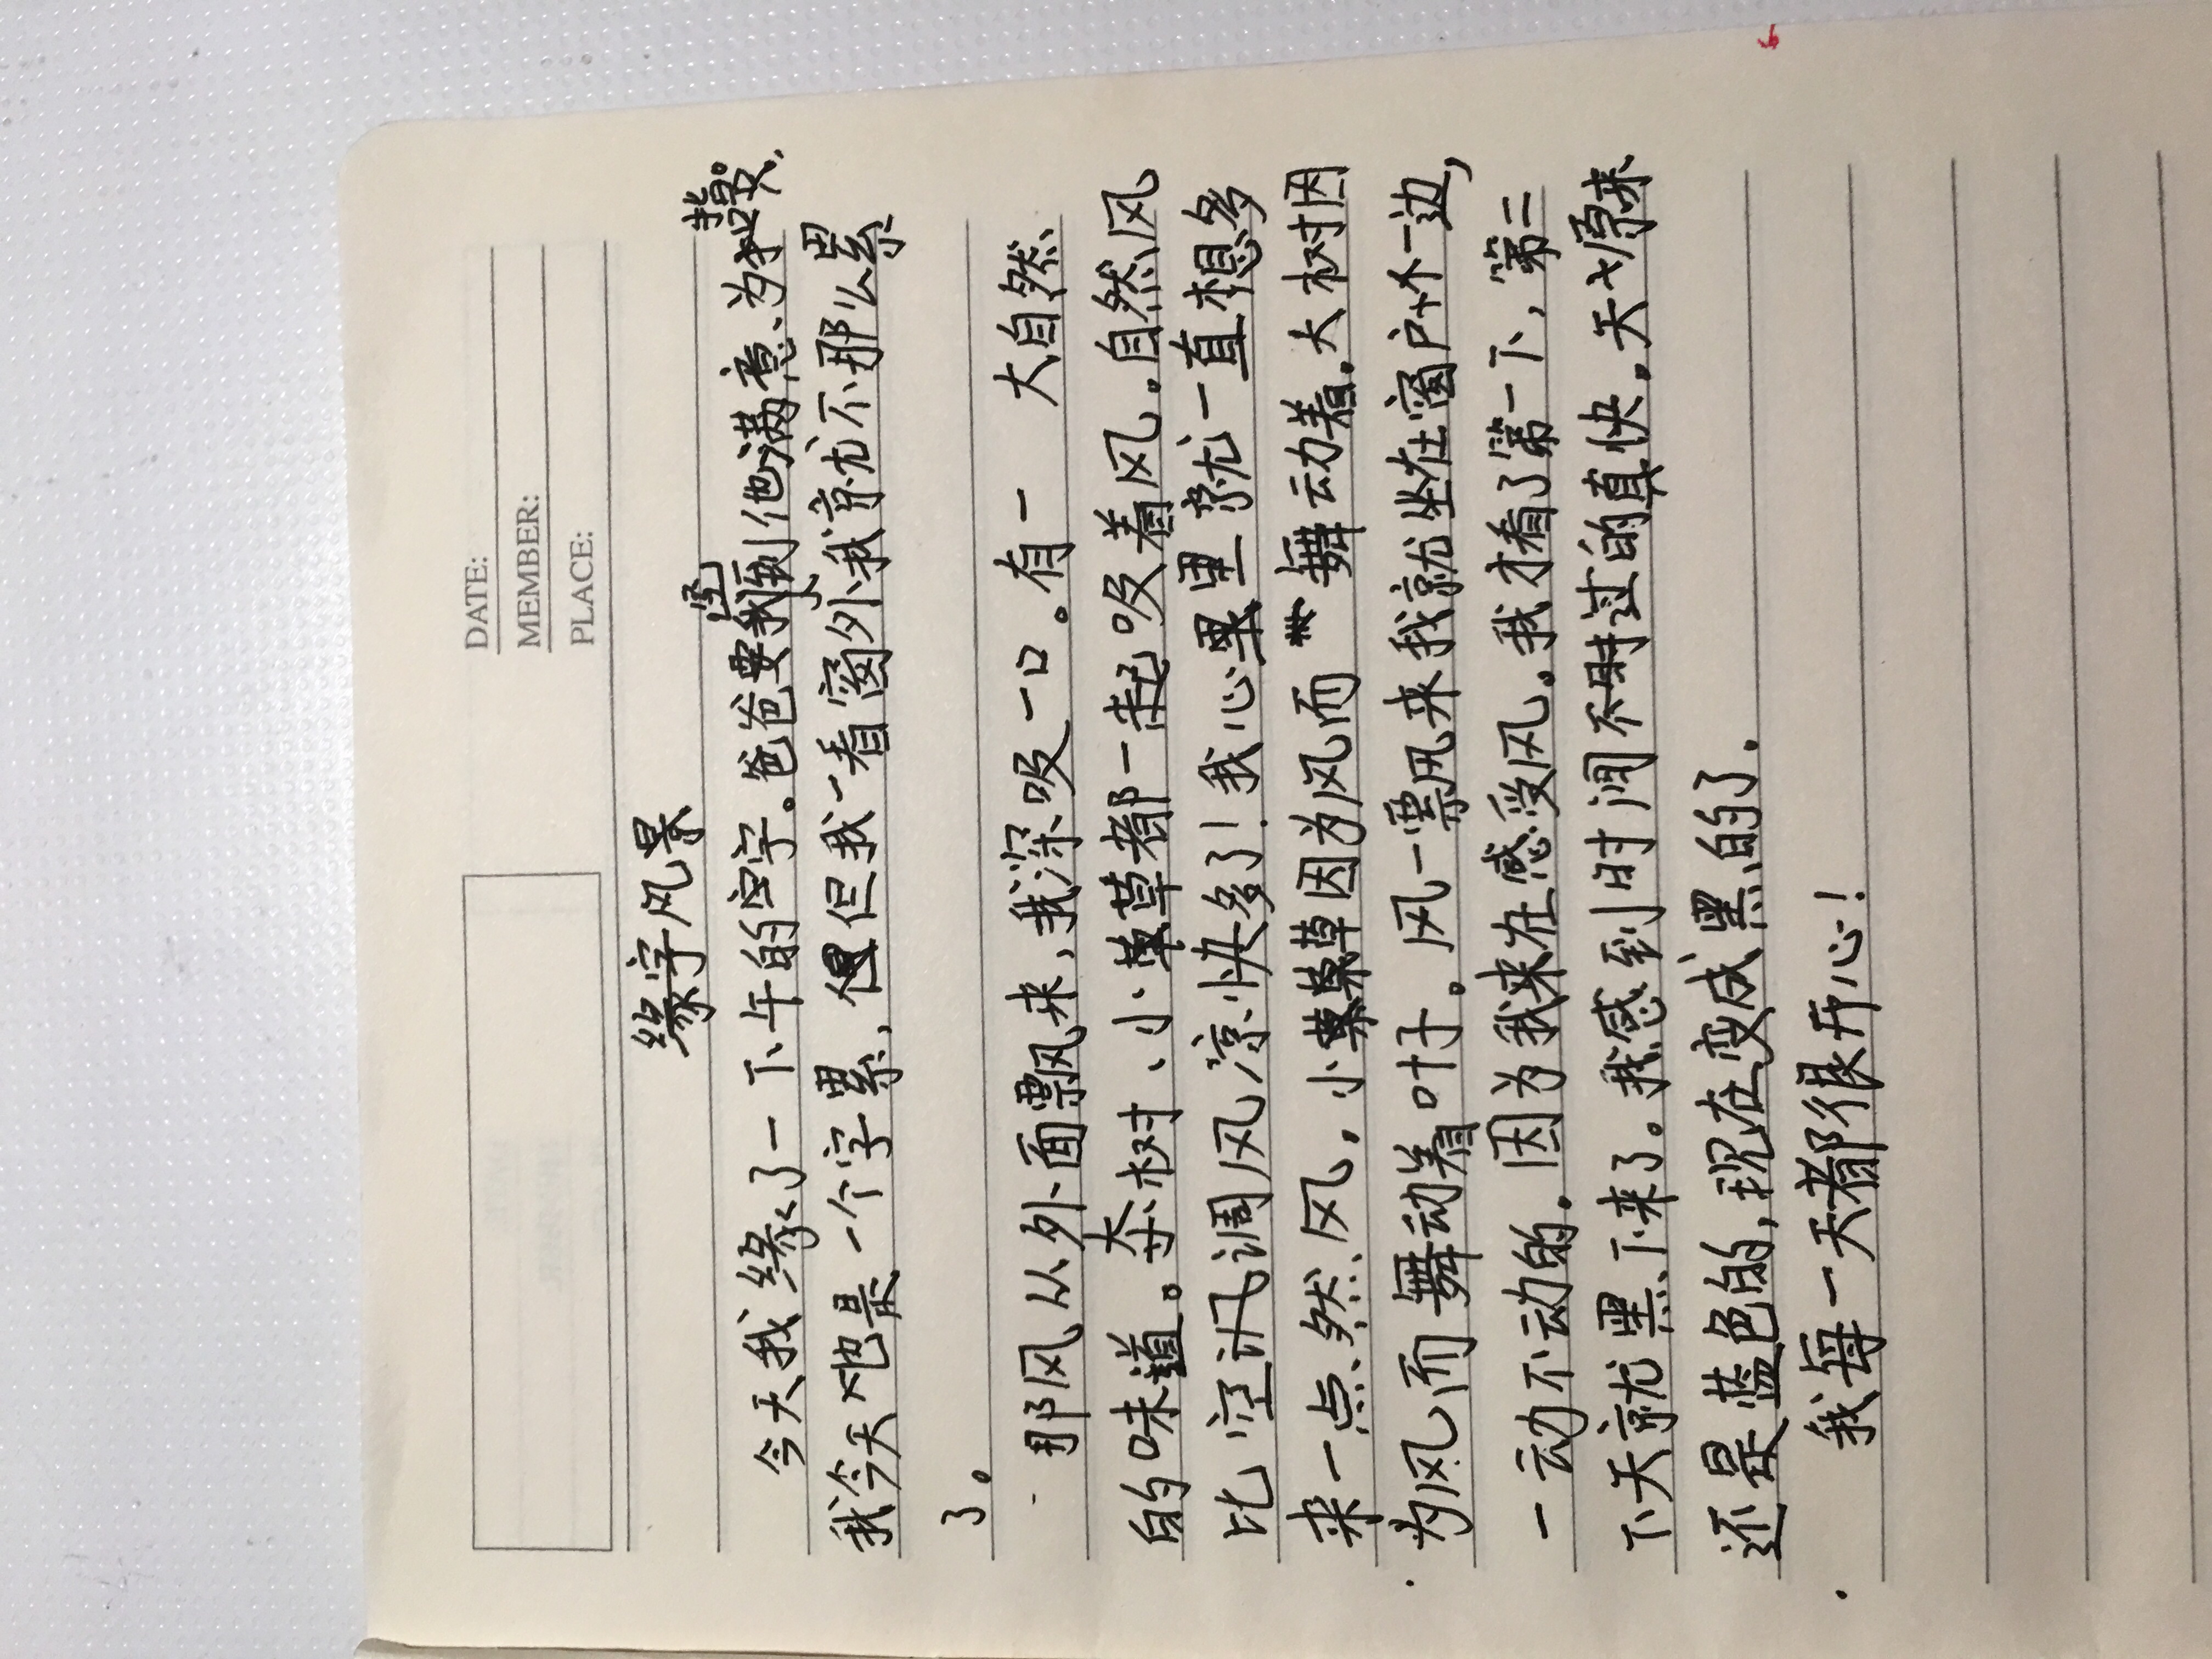 DATE:
MEMBER:
PLACE:
缘字风景
今天我缘了一下午的字。爸爸要我写到他满意为
我今天也是一个字累，但我一看窗外我就不那么累
了。
那风从外面飘风来，我深吸一口。有一 大自然
的味道。大树、小草都一起吸着风。自然风
比空调风凉快多了！我心里就一直想多
来一点然风。小草因为风而舞动着。大树因
为风而舞动着叶子。风一票风来我就坐在窗户一边，
一动不动的。因为我来在感受风。我才看了第一下，第二
下天就黑下来了。我感到时间过的真快。天原来
还是蓝色的，现在变成黑的了。
我每一天都很开心！